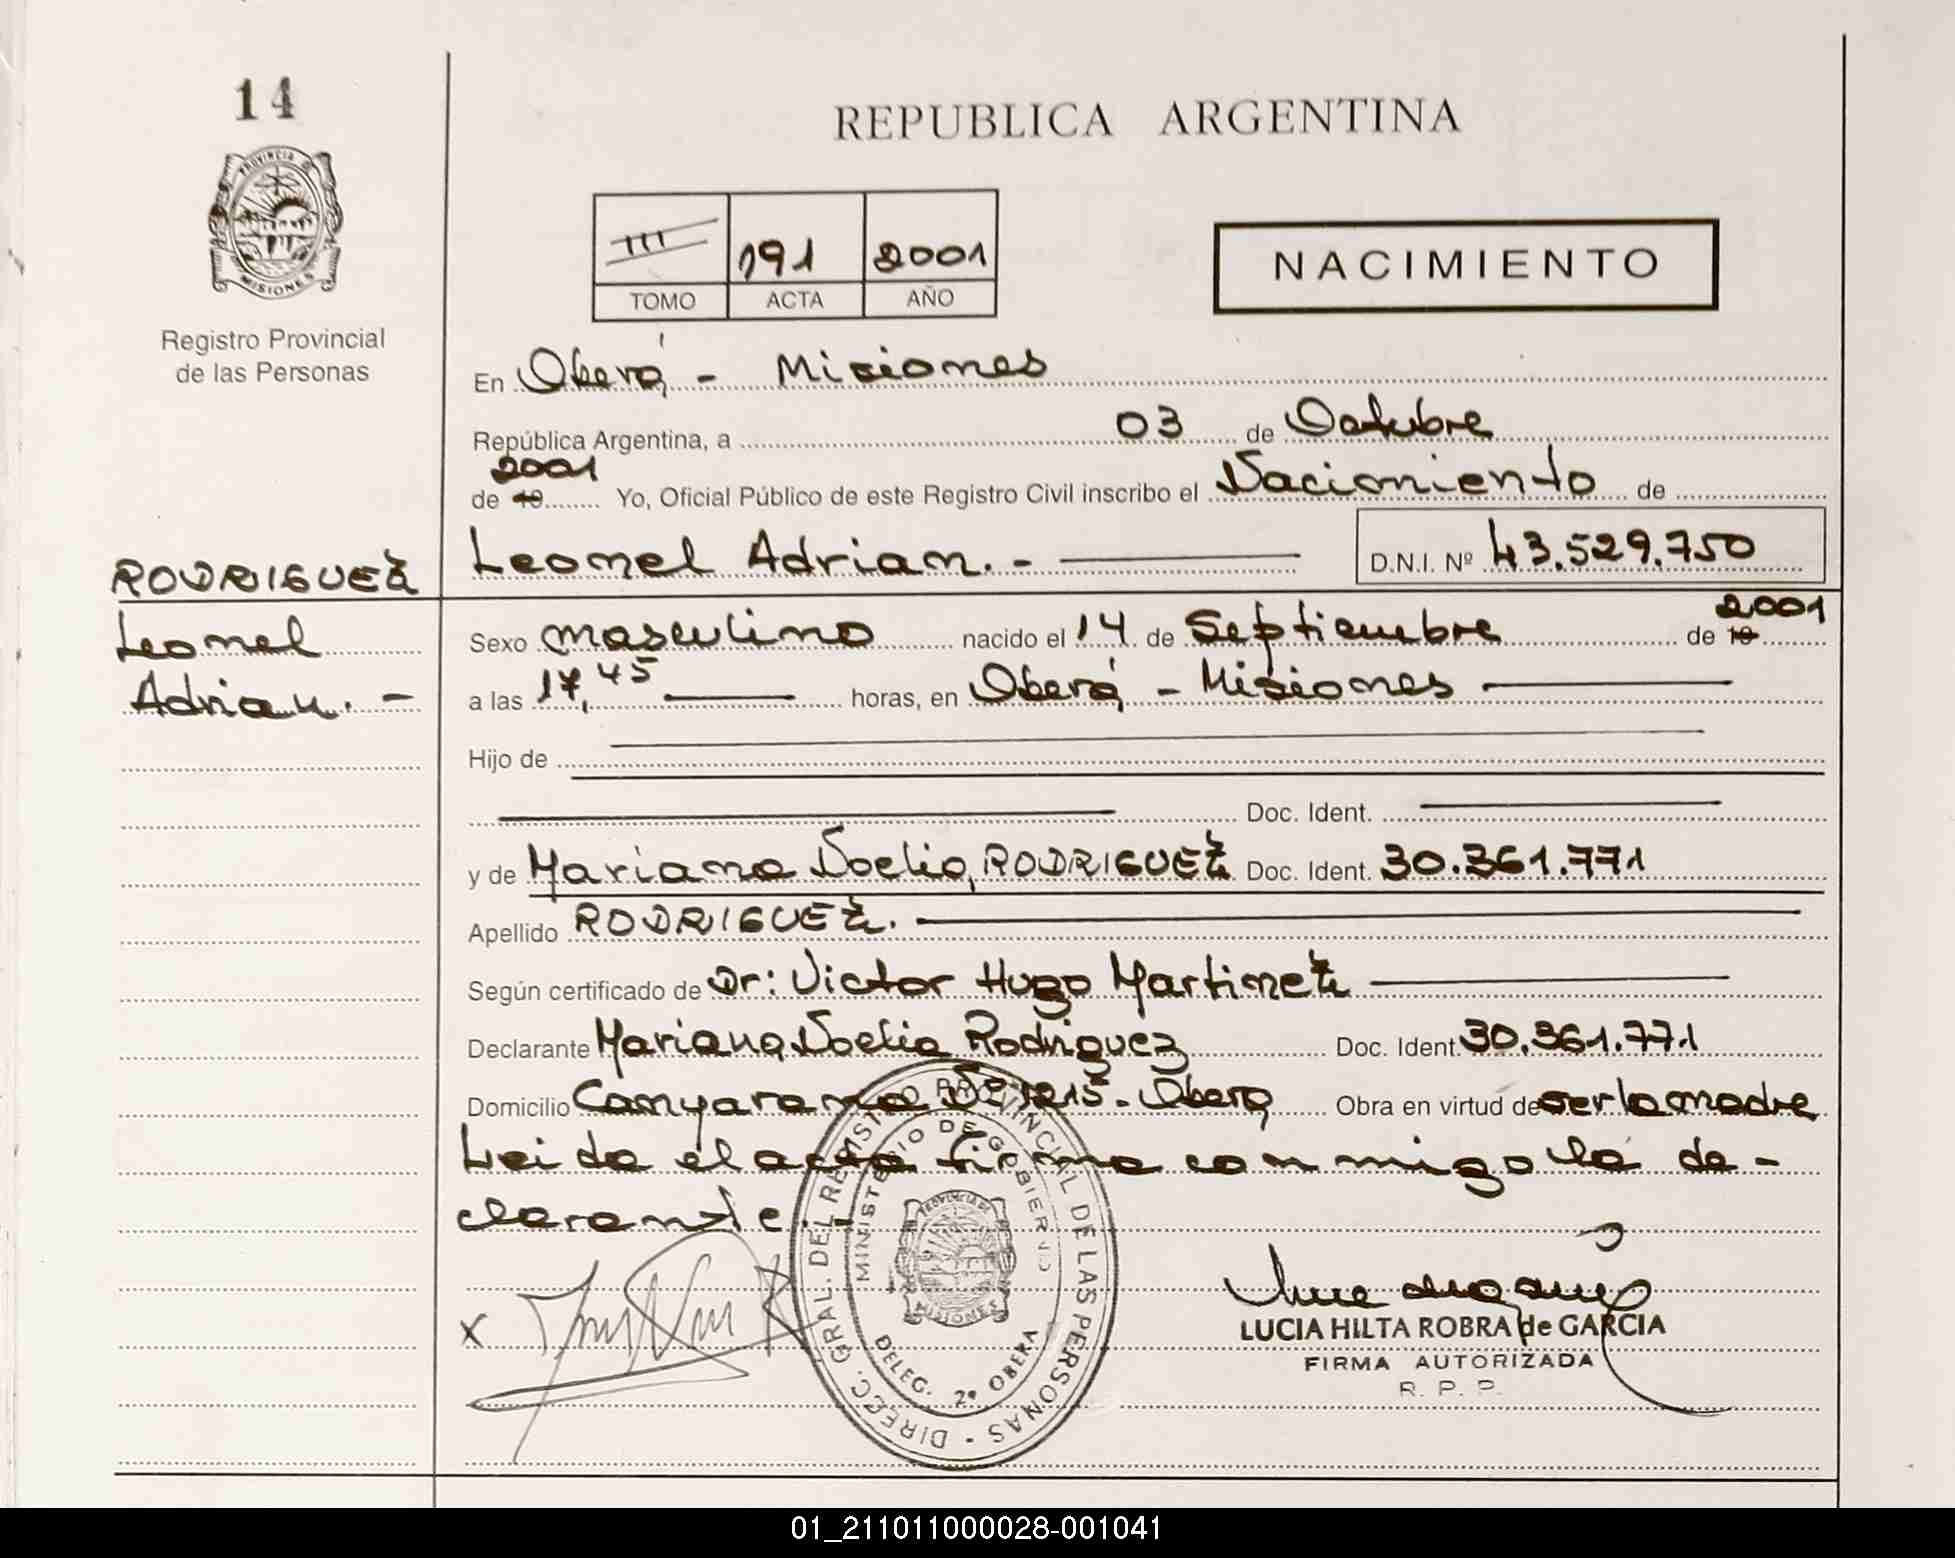 14
REPUBLICA ARGENTINA
PROVINCIA DE
MISIONES
Registro Provincial
de las Personas
III 191 2001
TOMO ACTA AÑO
NACIMIENTO
En Oberá - Misiones
República Argentina, a 03 de Octubre
2001
de 19 Yo, Oficial Público de este Registro Civil inscribo el Nacimiento de
Leonel Adrian. - D.N.I. Nº 43.529.750
RODRIGUEZ
Leonel
Adrian. -
Sexo masculino nacido el 14 de Septiembre de 19 2001
a las 17,45 horas, en Oberá - Misiones
Hijo de
Doc. Ident.
y de Mariana Noelia, RODRIGUEZ Doc. Ident. 30.361.771
Apellido RODRIGUEZ.
Según certificado de Dr: Victor Hugo Martinez
Declarante Mariana Noelia Rodriguez Doc. Ident. 30.361.771
Domicilio Oberá Obra en virtud de ser la madre
Leida el acta firma conmigo la de-
clarante.
DIREC. GRAL. DEL REGISTRO PROVINCIAL DE LAS PERSONAS
MINISTERIO DE GOBIERNO
PROVINCIA DE
MISIONES
DELEG. 2ª OBERA
X
LUCIA HILTA ROBRA de GARCIA
FIRMA AUTORIZADA
R. P. P.
01_211011000028-001041